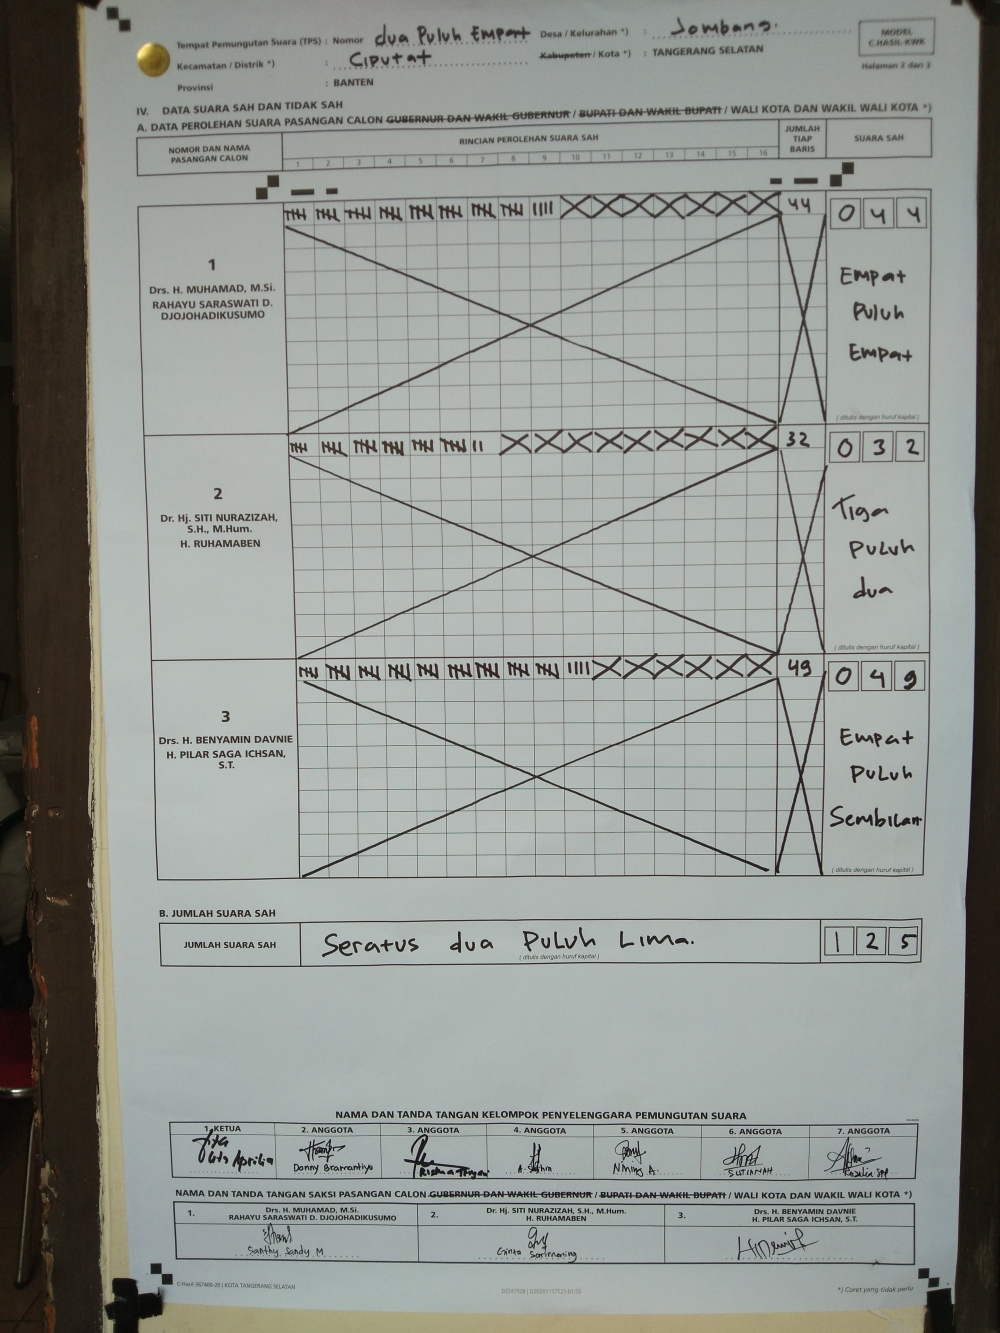 Tempat Pemungutan Suara (TPS) : Nomor dua Puluh Empat Desa / Kelurahan *) : Jombang.
Kecamatan / Distrik *) : Ciputat Kabupaten / Kota *) : TANGERANG SELATAN
Provinsi : BANTEN
MODEL
C.HASIL-KWK
Halaman 2 dari 3
IV. DATA SUARA SAH DAN TIDAK SAH
A. DATA PEROLEHAN SUARA PASANGAN CALON GUBERNUR DAN WAKIL GUBERNUR / BUPATI DAN WAKIL BUPATI / WALI KOTA DAN WAKIL WALI KOTA *)
NOMOR DAN NAMA PASANGAN CALON
RINCIAN PEROLEHAN SUARA SAH
1 2 3 4 5 6 7 8 9 10 11 12 13 14 15 16
JUMLAH TIAP BARIS
SUARA SAH
1
Drs. H. MUHAMAD, M.Si.
RAHAYU SARASWATI D.
DJOJOHADIKUSUMO
44
0 4 4
Empat
Puluh
Empat
( ditulis dengan huruf kapital )
2
Dr. Hj. SITI NURAZIZAH,
S.H., M.Hum.
H. RUHAMABEN
32
0 3 2
Tiga
Puluh
dua
( ditulis dengan huruf kapital )
3
Drs. H. BENYAMIN DAVNIE
H. PILAR SAGA ICHSAN,
S.T.
49
0 4 9
Empat
Puluh
Sembilan
( ditulis dengan huruf kapital )
B. JUMLAH SUARA SAH
JUMLAH SUARA SAH Seratus dua Puluh Lima. 1 2 5
( ditulis dengan huruf kapital )
NAMA DAN TANDA TANGAN KELOMPOK PENYELENGGARA PEMUNGUTAN SUARA
1. KETUA 2. ANGGOTA 3. ANGGOTA 4. ANGGOTA 5. ANGGOTA 6. ANGGOTA 7. ANGGOTA
Aprilia Donny Bramantiyo Nining A. SUTIANAH
NAMA DAN TANDA TANGAN SAKSI PASANGAN CALON GUBERNUR DAN WAKIL GUBERNUR / BUPATI DAN WAKIL BUPATI / WALI KOTA DAN WAKIL WALI KOTA *)
1. Drs. H. MUHAMAD, M.Si.
RAHAYU SARASWATI D. DJOJOHADIKUSUMO
2. Dr. Hj. SITI NURAZIZAH, S.H., M.Hum.
H. RUHAMABEN
3. Drs. H. BENYAMIN DAVNIE
H. PILAR SAGA ICHSAN, S.T.
Santhy Sandy M
C-Hasil-367400-20 | KOTA TANGERANG SELATAN
*) Coret yang tidak perlu